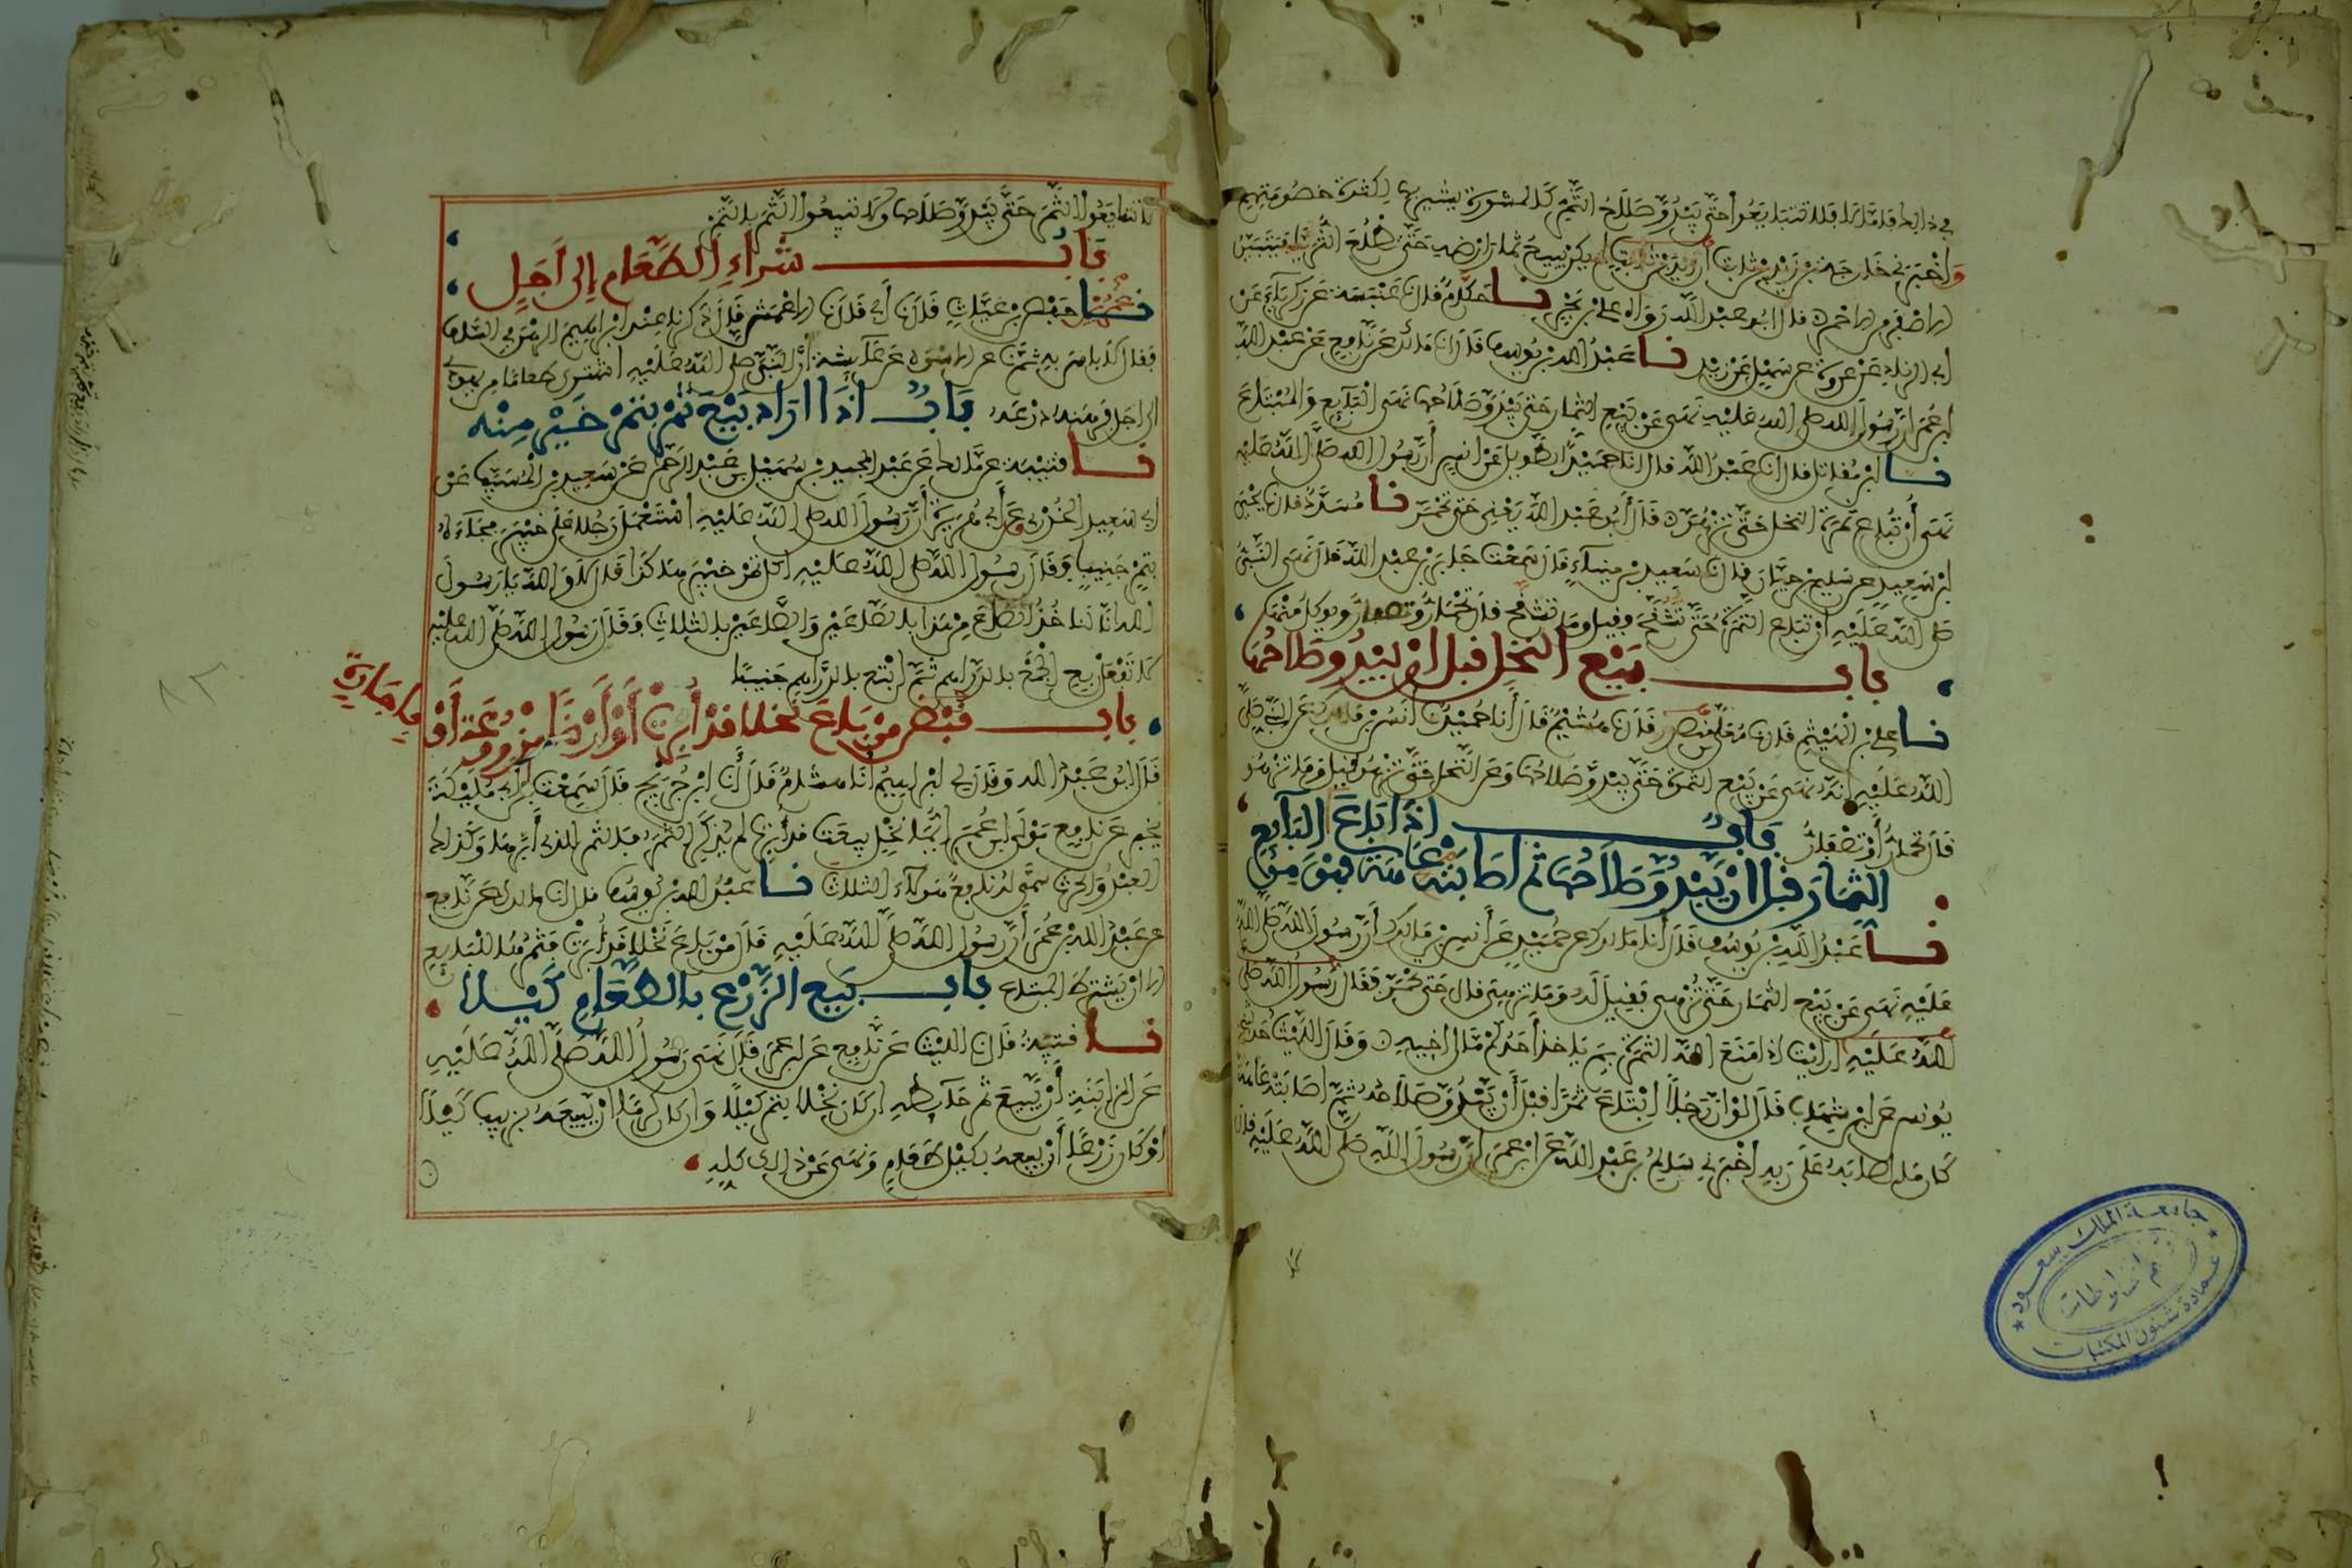 في ذلك فإما لا فلا تتبايعوا حتى يبدو صلاح الثمر كالمشورة يشير بها لكثرة خصومتهم
وأخبرني خارجة بن زيد بن ثابت أن زيد بن ثابت لم يكن يبيع ثمار أرضه حتى تطلع الثريا فيتبين
الاصفر من الاحمر قال ابو عبد الله رواه علي بن بحر نا حكام قال نا عنبسة عن زكرياء عن
ابي الزناد عن عروة عن سهل عن زيد نا عبد الله بن يوسف قال انا مالك عن نافع عن عبد الله
ابن عمر ان رسول الله صلى الله عليه نهى عن بيع الثمار حتى يبدو صلاحها نهى البائع والمبتاع
نا ابن مقاتل قال انا عبد الله قال انا حميد الطويل عن انس أن رسول الله صلى الله عليه
نهى أن تباع ثمرة النخل حتى تزهو قال أبو عبد الله يعني حتى تحمر نا مسدد قال نا يحيى
ابن سعيد عن سليم بن حيان قال نا سعيد بن ميناء قال سمعت جابر بن عبد الله قال نهى النبي
صلى الله عليه أن تباع الثمرة حتى تشقح وقيل وما تشقح قال تحمار وتصفار ويوكل منها
باب بيع النخل قبل ان يبدو صلاحها
نا علي بن الهيثم قال نا معلى بن منصور قال نا هشيم قال أنا حميد نا أنس بن مالك عن النبي صلى
الله عليه انه نهى عن بيع الثمرة حتى يبدو صلاحها وعن النخل حتى تزهو قيل وما تزهو
قال تحمار أو تصفار باب اذا باع البائع
الثمار قبل ان يبدو صلاحها ثم اصابته عاهة فهو من
نا عبد الله بن يوسف قال أنا مالك عن حميد عن أنس بن مالك أن رسول الله صلى الله
عليه نهى عن بيع الثمار حتى تزهى فقيل له وما تزهى قال حتى تحمر فقال رسول الله صلى
الله عليه ارايت اذا منع الله الثمرة بم ياخذ أحدكم مال اخيه وقال الليث حدثني
يونس عن ابن شهاب قال لو ان رجلا ابتاع ثمرا قبل أن يبدو صلاحه ثم اصابته عاهة
كان ما اصابه على ربه أخبرني سالم بن عبد الله عن ابن عمر أن رسول الله صلى الله عليه قال
لا تتبايعوا الثمر حتى يبدو صلاحها ولا تبيعوا الثمر بالتمر
باب شراء الطعام إلى أجل
نا عمر بن حفص بن غياث قال نا أبي قال نا الاعمش قال ذكرنا عند ابراهيم الرهن في السلف
فقال لا باس به ثم نا عن الاسود عن عائشة أن النبي صلى الله عليه اشترى طعاما من يهودي
الى اجل فرهنه درعه باب اذا اراد بيع تمر بتمر خير منه
نا قتيبة عن مالك عن عبد المجيد بن سهيل بن عبد الرحمن عن سعيد بن المسيب عن
ابي سعيد الخدري وعن أبي هريرة أن رسول الله صلى الله عليه استعمل رجلا على خيبر فجاءه
بتمر جنيب فقال رسول الله صلى الله عليه اكل تمر خيبر هكذا قال لا والله يا رسول
الله انا لناخذ الصاع من هذا بالصاعين والصاعين بالثلاث فقال رسول الله صلى الله عليه
لا تفعل بع الجمع بالدراهم ثم ابتع بالدراهم جنيبا
باب قبض من باع نخلا قد أبرت أو أرضا مزروعة أو
باجارة
قال ابو عبد الله وقال لي ابراهيم أنا هشام قال أنا ابن جريج قال سمعت ابن أبي مليكة
يخبر عن نافع مولى ابن عمر ايما نخل بيعت قد أبرت لم يذكر الثمر فالثمر للذي أبرها وكذلك
العبد والحرث سمى له نافع هؤلاء الثلاث نا عبد الله بن يوسف قال انا مالك عن نافع
عن عبد الله بن عمر أن رسول الله صلى الله عليه قال من باع نخلا قد أبرت فثمرها للبائع
الا ان يشترط المبتاع باب بيع الزرع بالطعام كيلا
نا قتيبة قال نا الليث عن نافع عن ابن عمر قال نهى رسول الله صلى الله عليه
عن المزابنة أن يبيع ثمر حائطه ان كان نخلا بتمر كيلا وان كان كرما ان يبيعه بزبيب كيلا
او كان زرعا أن يبيعه بكيل طعام ونهى عن ذلك كله
جامعة الملك سعود
عمادة شئون المكتبات
قسم المخطوطات